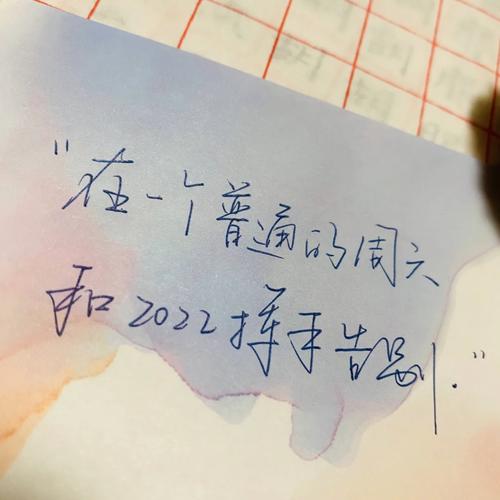 "在一个普通的周六
和2022挥手告别."